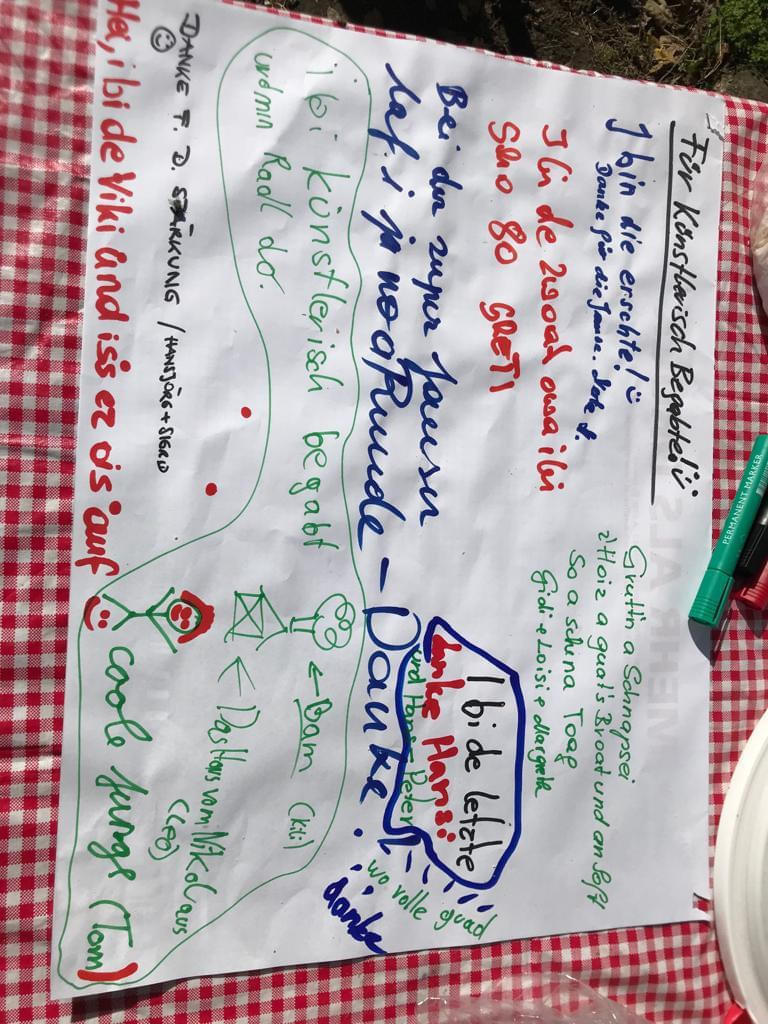 Für Künstlerisch Begabte!
I bin die erschte!
Danke für die Jause.
I bi de zwoat owa ibi
Scho 80 GRETI
Bei der super Jausn
laf i ja no a Runde - Danke.
i bi künstlerisch begabt
und min Radl do.
DANKE F. D. STÄRKUNG / HANSJÖRG + SIGRID
Hei, i bi de Viki and iss ez ois auf
Gratin a Schnapsei
z'Hoiz a guat's Broat und an Soft
So a schena Toag
Gidi + Loisi + Margreth
I bi de letzte
danke Hansi
und Hans-Peter
wo volle guad
danke
← Bam (Kili)
← Das Haus vom Nikolaus
(Leo)
coole Jungs (Tom)
PERMANENT MARKER